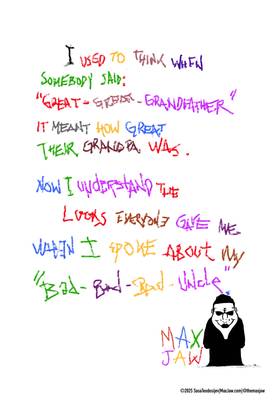 I USED TO THINK WHEN
SOMEBODY SAID:
"GREAT-GREAT-GRANDFATHER"
IT MEANT HOW GREAT
THEIR GRANDPA WAS.
NOW I UNDERSTAND THE
LOOKS EVERYONE GAVE ME
WHEN I SPOKE ABOUT MY
"BAD-BAD-BAD-UNCLE"
MAX
JAW